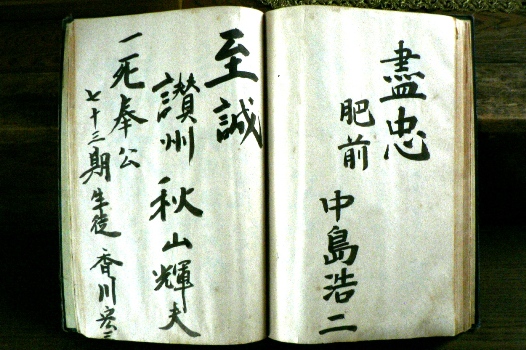 盡忠
肥前
中島浩二
至誠
讃州 秋山輝夫
一死奉公
七十三期生徒 香川宏三